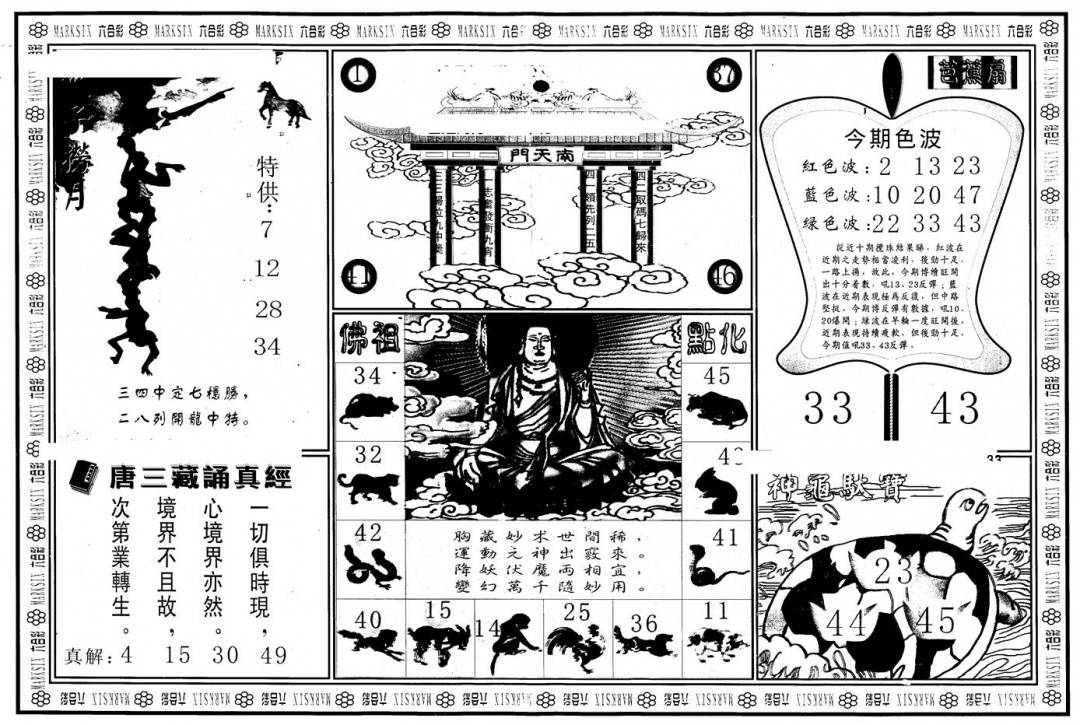 MARKSIX 六合彩 MARKSIX 六合彩 MARKSIX 六合彩 MARKSIX 六合彩 MARKSIX 六合彩 MARKSIX 六合彩 MARKSIX 六合彩 MARKSIX 六合彩 MARKSIX 六合彩 MARKSIX 六合彩
撈月
特供:
7
12
28
34
三四中定七穩勝，
二八列開龍中特。
唐三藏誦真經
一切俱時現，
心境界亦然。
境界不且故，
次第業轉生。
真解: 4 15 30 49
1
37
南天門
四二取碼七歸來
四一領先列二五
志奮發衝九宵
41
46
佛祖
點化
34
45
32
42
41
胸藏妙术世間稀，
運動元神出竅來。
降妖伏魔兩相宜，
變幻萬千隨妙用。
40
15
14
25
36
11
芭蕉扇
今期色波
紅色波: 2 13 23
藍色波: 10 20 47
綠色波: 22 33 43
從近十期攪珠結果睇，紅波在
近期之走勢相當凌利，後勁十足，
一路上揚，故此，今期博續旺開
出十分着數，吼13、23反彈；藍
波在近期表現極為反復，但中路
堅挺，今期博反彈有數據，吼10、
20爆開；綠波在早輪一度旺開後，
近期表現持續疲軟，但後勁十足，
今期值吼33、43反彈。
33 43
33
神龜馱寶
23
44
45